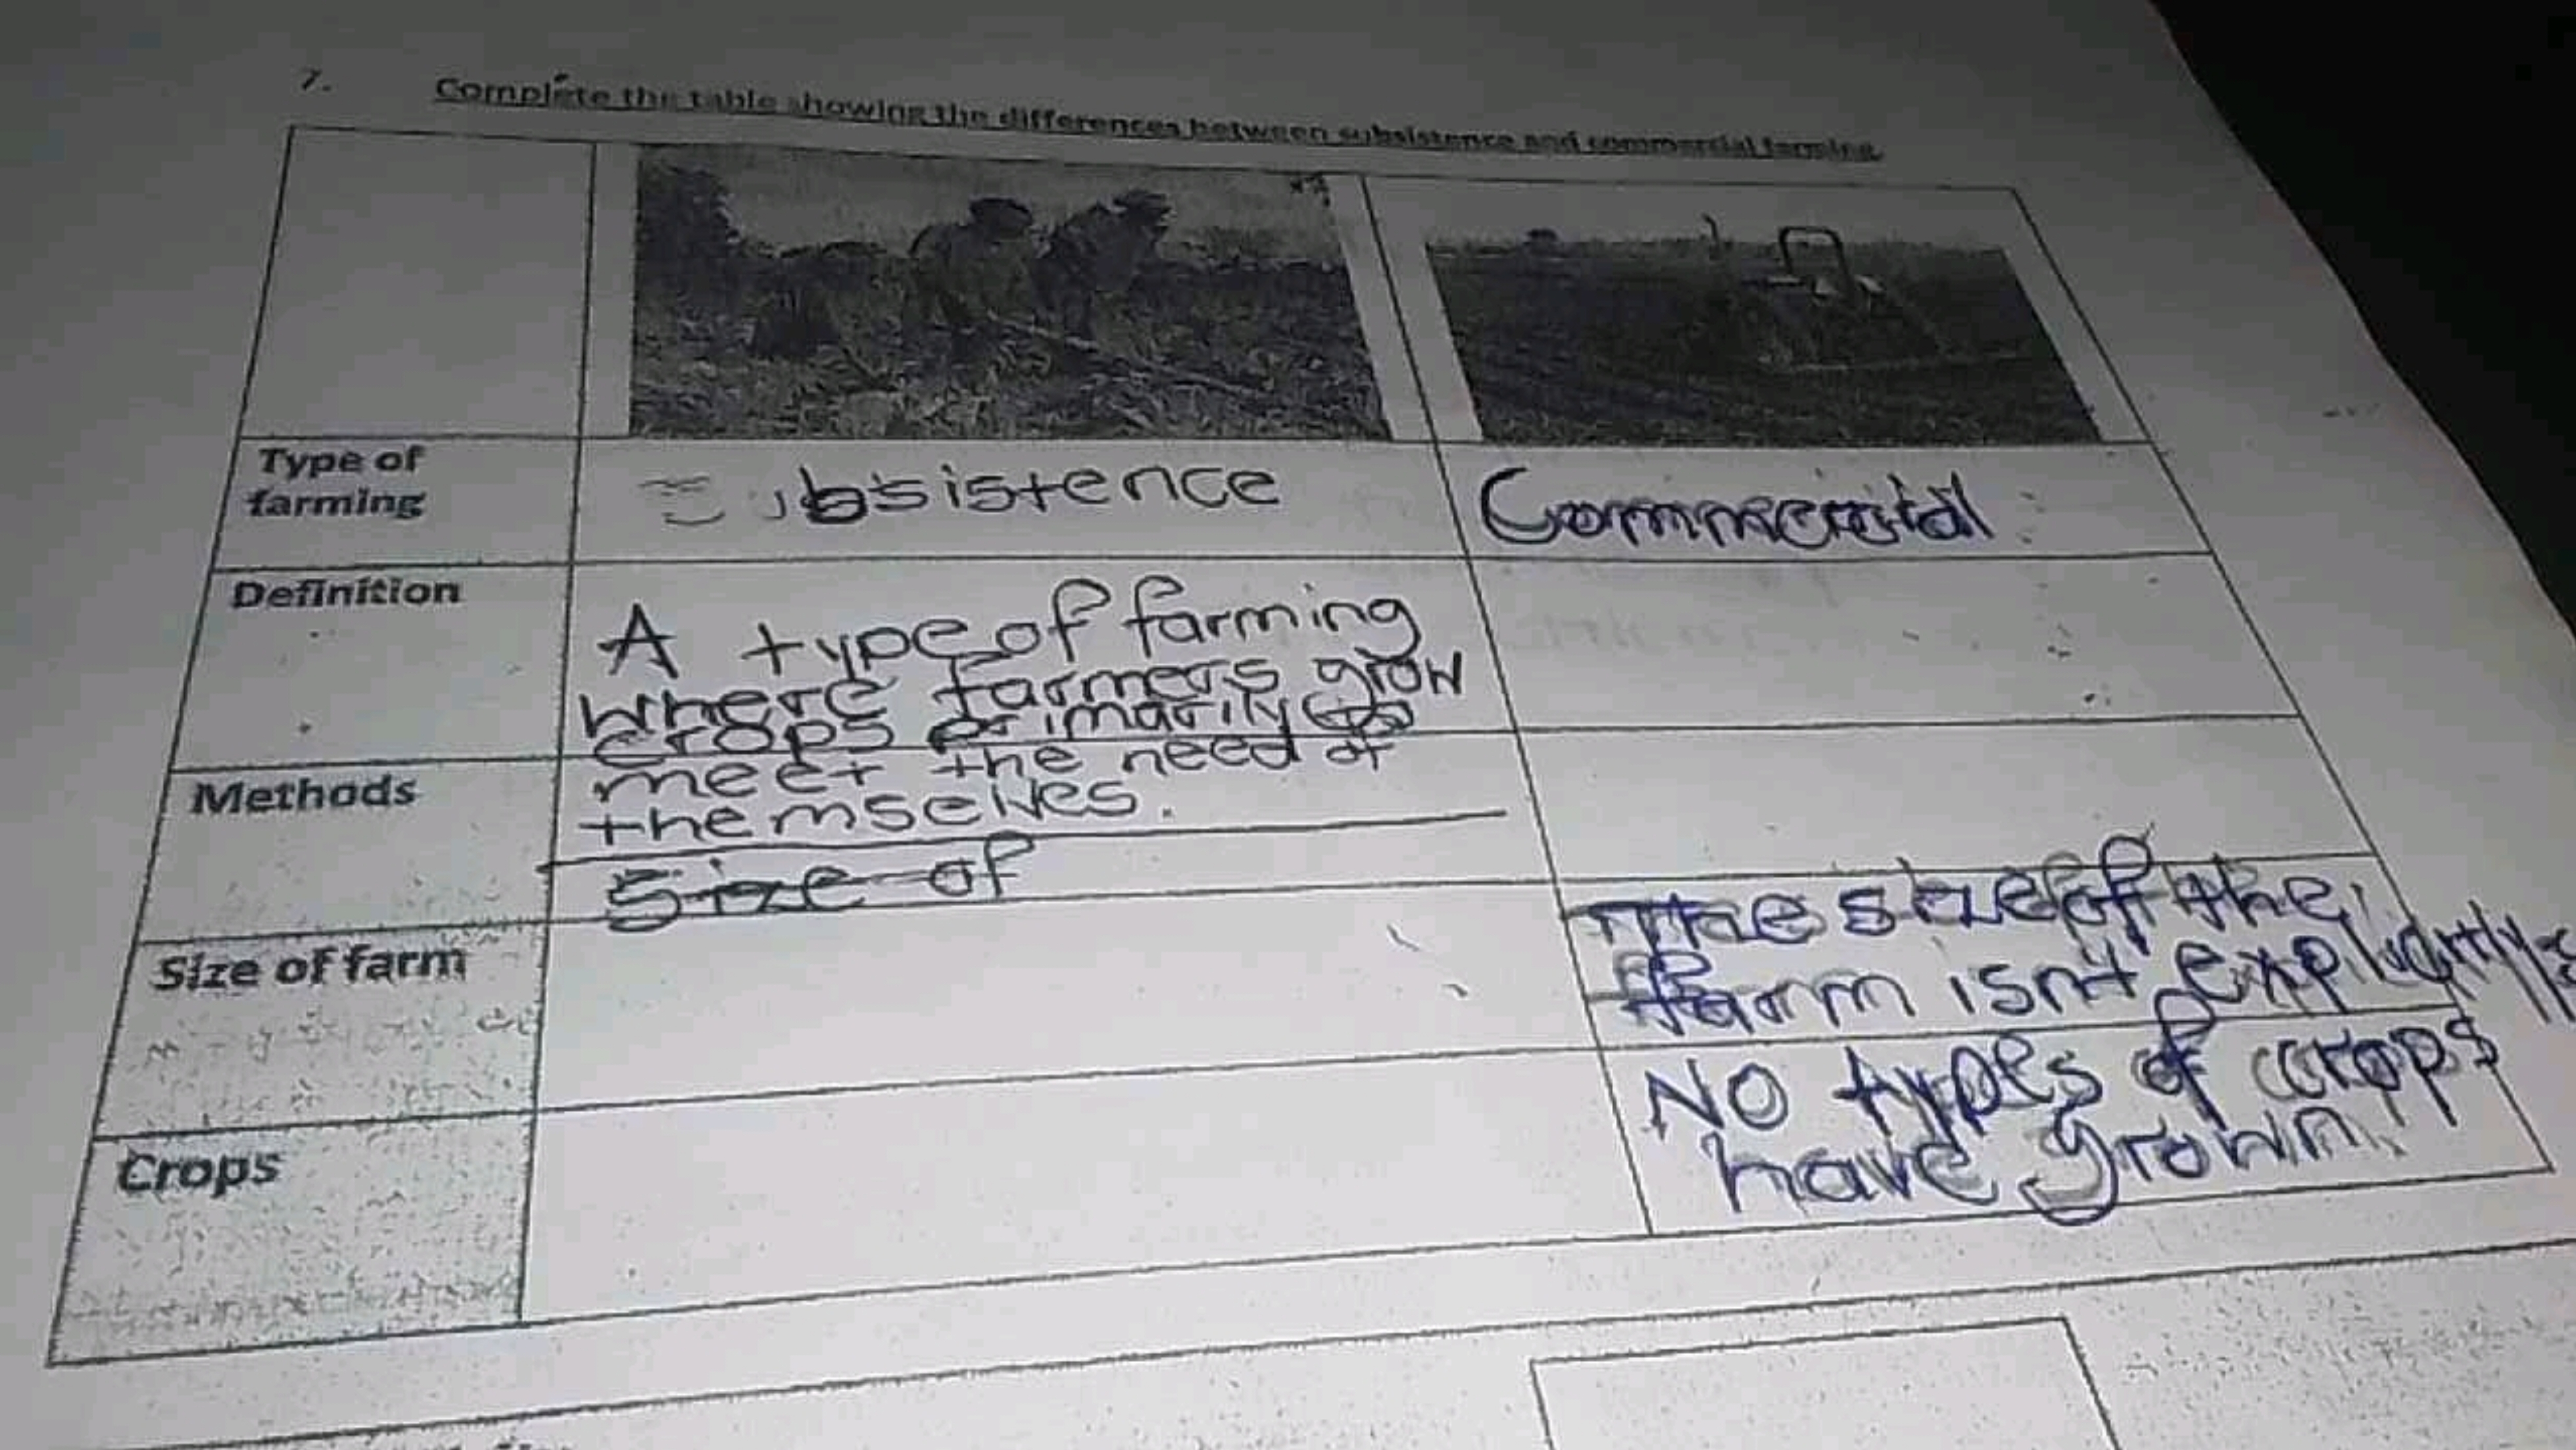 7. Complete the table showing the differences between subsistence and commercial farming
Type of
farming
Subsistence
Commercial
Definition
A type of farming
where farmers grow
crops primarily to
meet the need of
themselves.
Methods
Size of
Size of farm
The size of the
farm isn't
Crops
No types of crops
have grown.